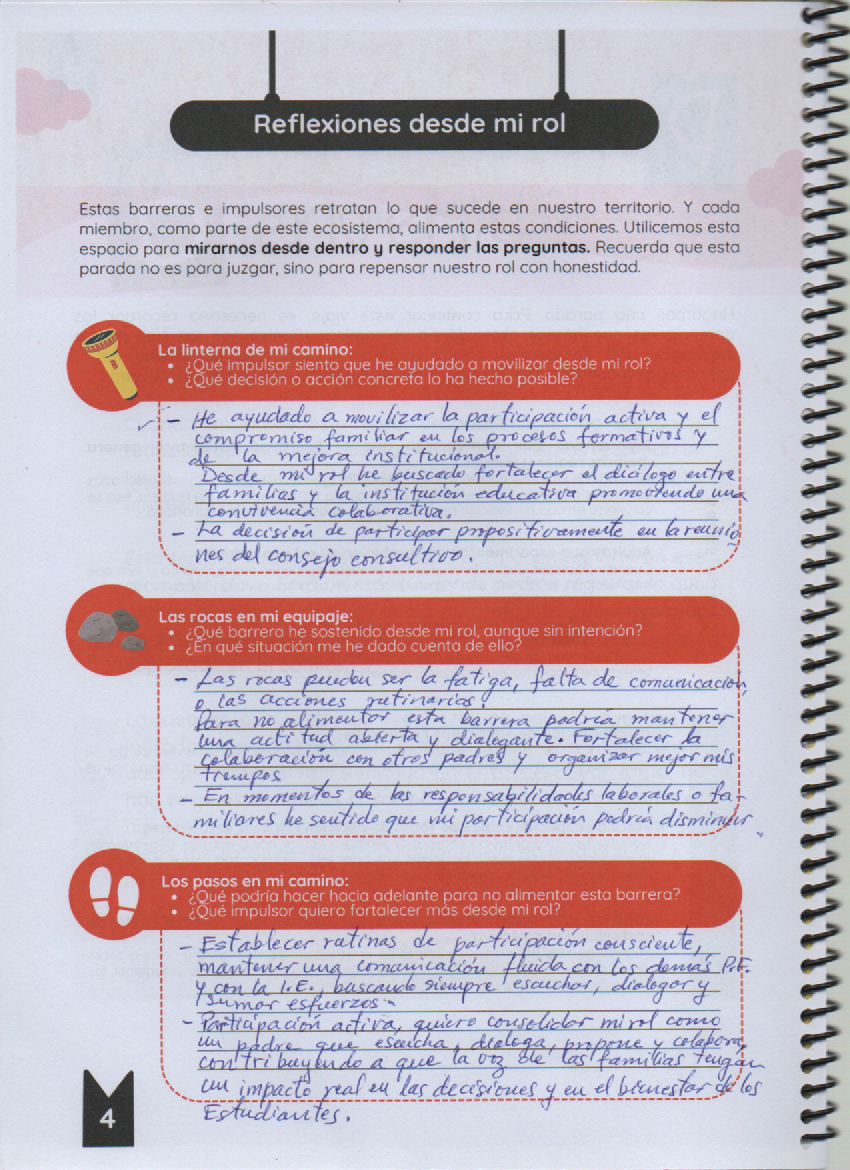 Reflexiones desde mi rol
Estas barreras e impulsores retratan lo que sucede en nuestro territorio. Y cada
miembro, como parte de este ecosistema, alimenta estas condiciones. Utilicemos esta
espacio para mirarnos desde dentro y responder las preguntas. Recuerda que esta
parada no es para juzgar, sino para repensar nuestro rol con honestidad.
La linterna de mi camino:
• ¿Qué impulsor siento que he ayudado a movilizar desde mi rol?
• ¿Qué decisión o acción concreta lo ha hecho posible?
✓ - He ayudado a movilizar la participación activa y el
compromiso familiar en los procesos formativos y
de la mejora institucional.
Desde mi rol he buscado fortalecer el diálogo entre
familias y la institución educativa promoviendo una
convivencia colaborativa.
- La decisión de participar propositivamente en la reunio
nes del consejo consultivo.
Las rocas en mi equipaje:
• ¿Qué barrera he sostenido desde mi rol, aunque sin intención?
• ¿En qué situación me he dado cuenta de ello?
- Las rocas pueden ser la fatiga, falta de comunicación,
o las acciones rutinarias.
Para no alimentar esta barrera podría mantener
una actitud abierta y dialogante. Fortalecer la
colaboración con otros padres y organizar mejor mis
tiempos
- En momentos de las responsabilidades laborales o fa-
miliares he sentido que mi participación podría disminuir
Los pasos en mi camino:
• ¿Qué podría hacer hacia adelante para no alimentar esta barrera?
• ¿Qué impulsor quiero fortalecer más desde mi rol?
- Establecer rutinas de participación consciente,
mantener una comunicación fluida con los demás P.F.
y con la I.E., buscando siempre escuchar, dialogar y
sumar esfuerzos -
- Participación activa, quiero consolidar mi rol como
un padre que escucha, dialoga, propone y colabora,
contribuyendo a que la voz de las familias tengan
un impacto real en las decisiones y en el bienestar de los
Estudiantes.
4